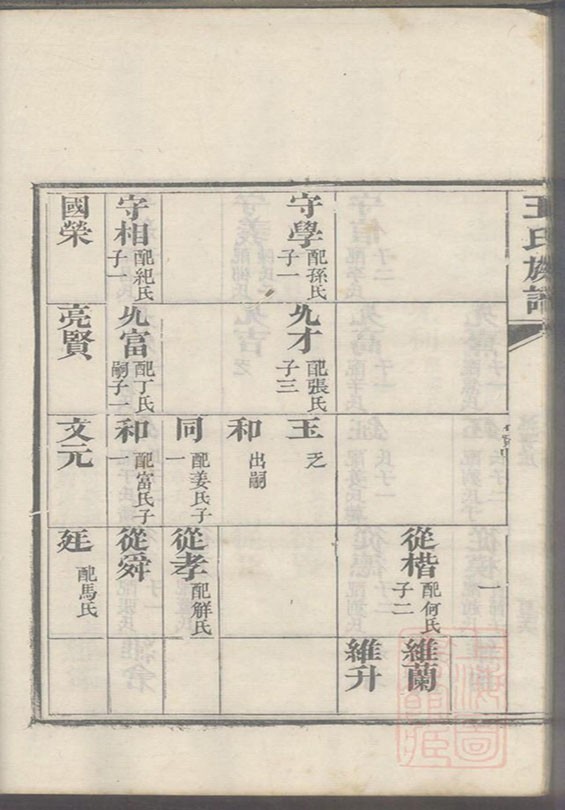 王氏族譜
一
從楷 配何氏 子二
維蘭
維升
守學 配孫氏 子一
允才 配張氏 子三
玉 乏
和 出嗣
同 配姜氏子一
從孝 配解氏
守相 配紀氏 子一
允富 配丁氏 嗣子一
和 配富氏子一
從舜
國榮
亮賢
文元
廷 配馬氏